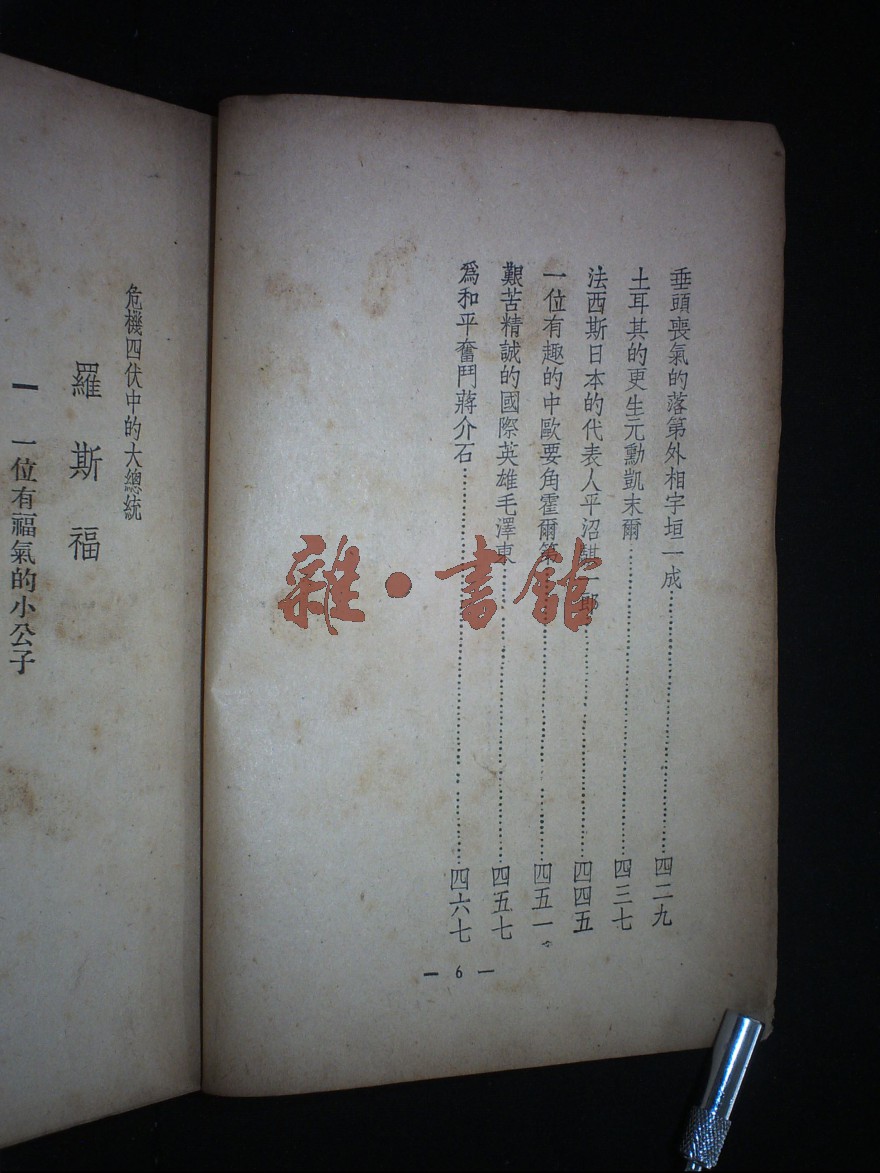 垂頭喪氣的落第外相宇垣一成……四二九
土耳其的更生元勳凱末爾……四三七
法西斯日本的代表人平沼騏一郎……四四五
一位有趣的中歐要角霍爾第……四五一
艱苦精誠的國際英雄毛澤東……四五七
爲和平奮鬥蔣介石……四六七
— 6 —
危機四伏中的大總統
羅斯福
一 一位有福氣的小公子
雜·書館